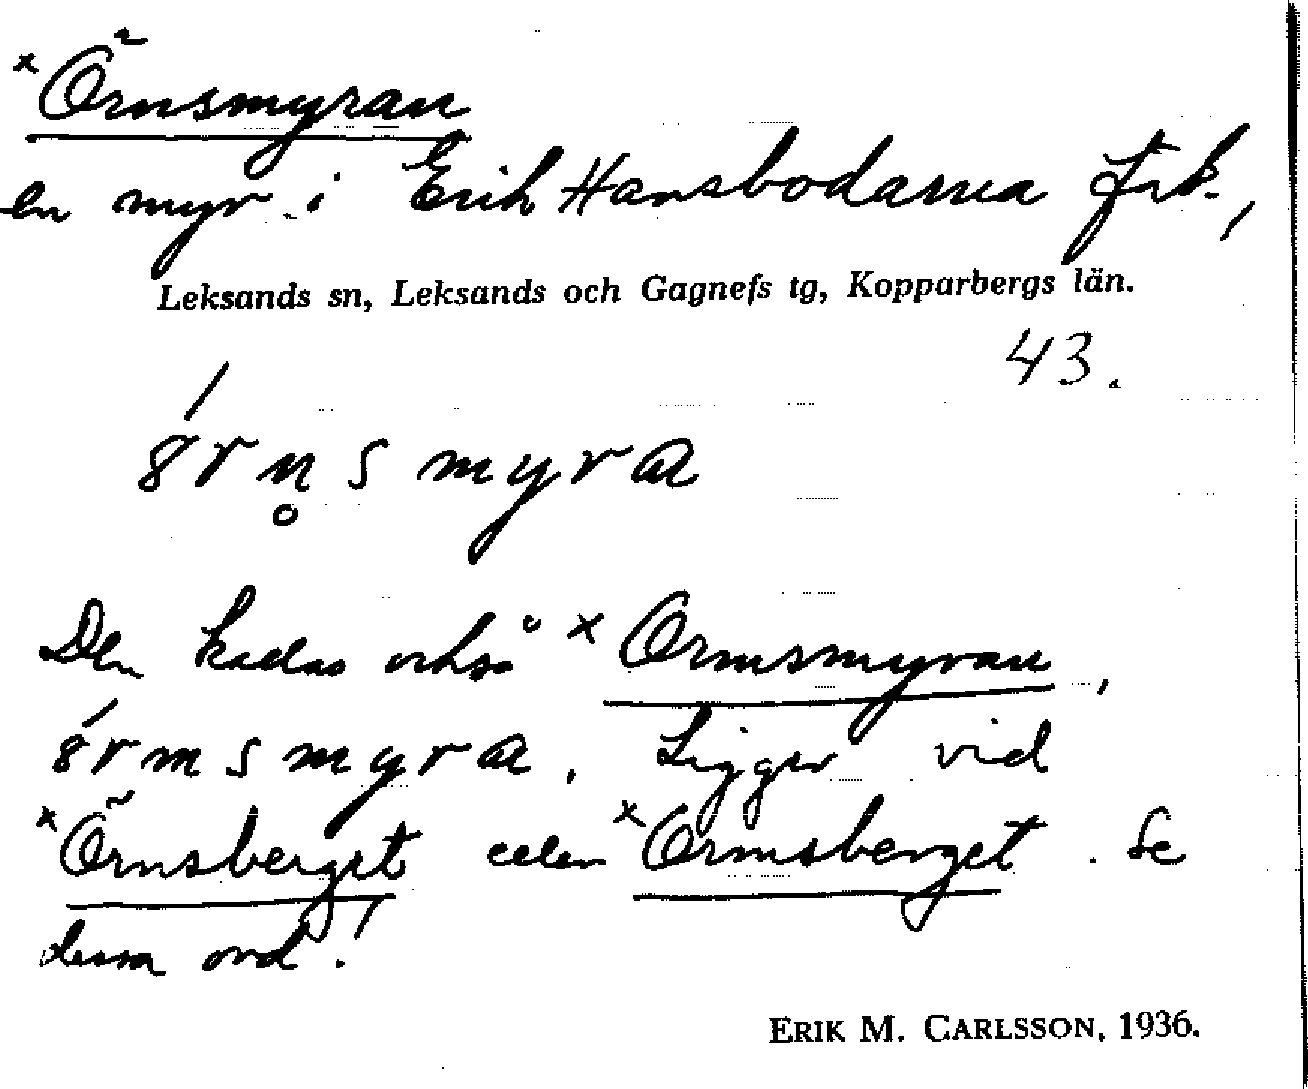 ˣÖrnsmyran
en myr i Erik Hansbodarna frk.,
Leksands sn, Leksands och Gagnefs tg, Kopparbergs län.
43.
ʹ8rn̥smyra
Den kallas också ˣOrmsmyran,
ʹ8rmsmyra. Ligger vid
ˣÖrnsberget eller ˣOrmsberget. Se
dessa ord!
ERIK M. CARLSSON, 1936.